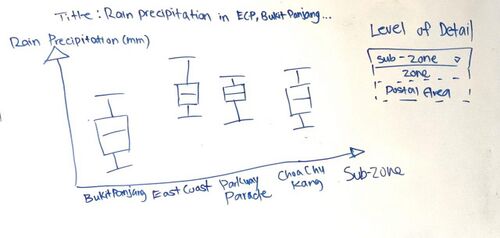 Title: Rain precipitation in ECP, Bukit Panjang...
Rain Precipitation (mm)
Level of Detail
sub-zone
zone
Postal Area
Bukit Panjang
East Coast
Parkway
Parade
Choa Chu
Kang
Sub-zone